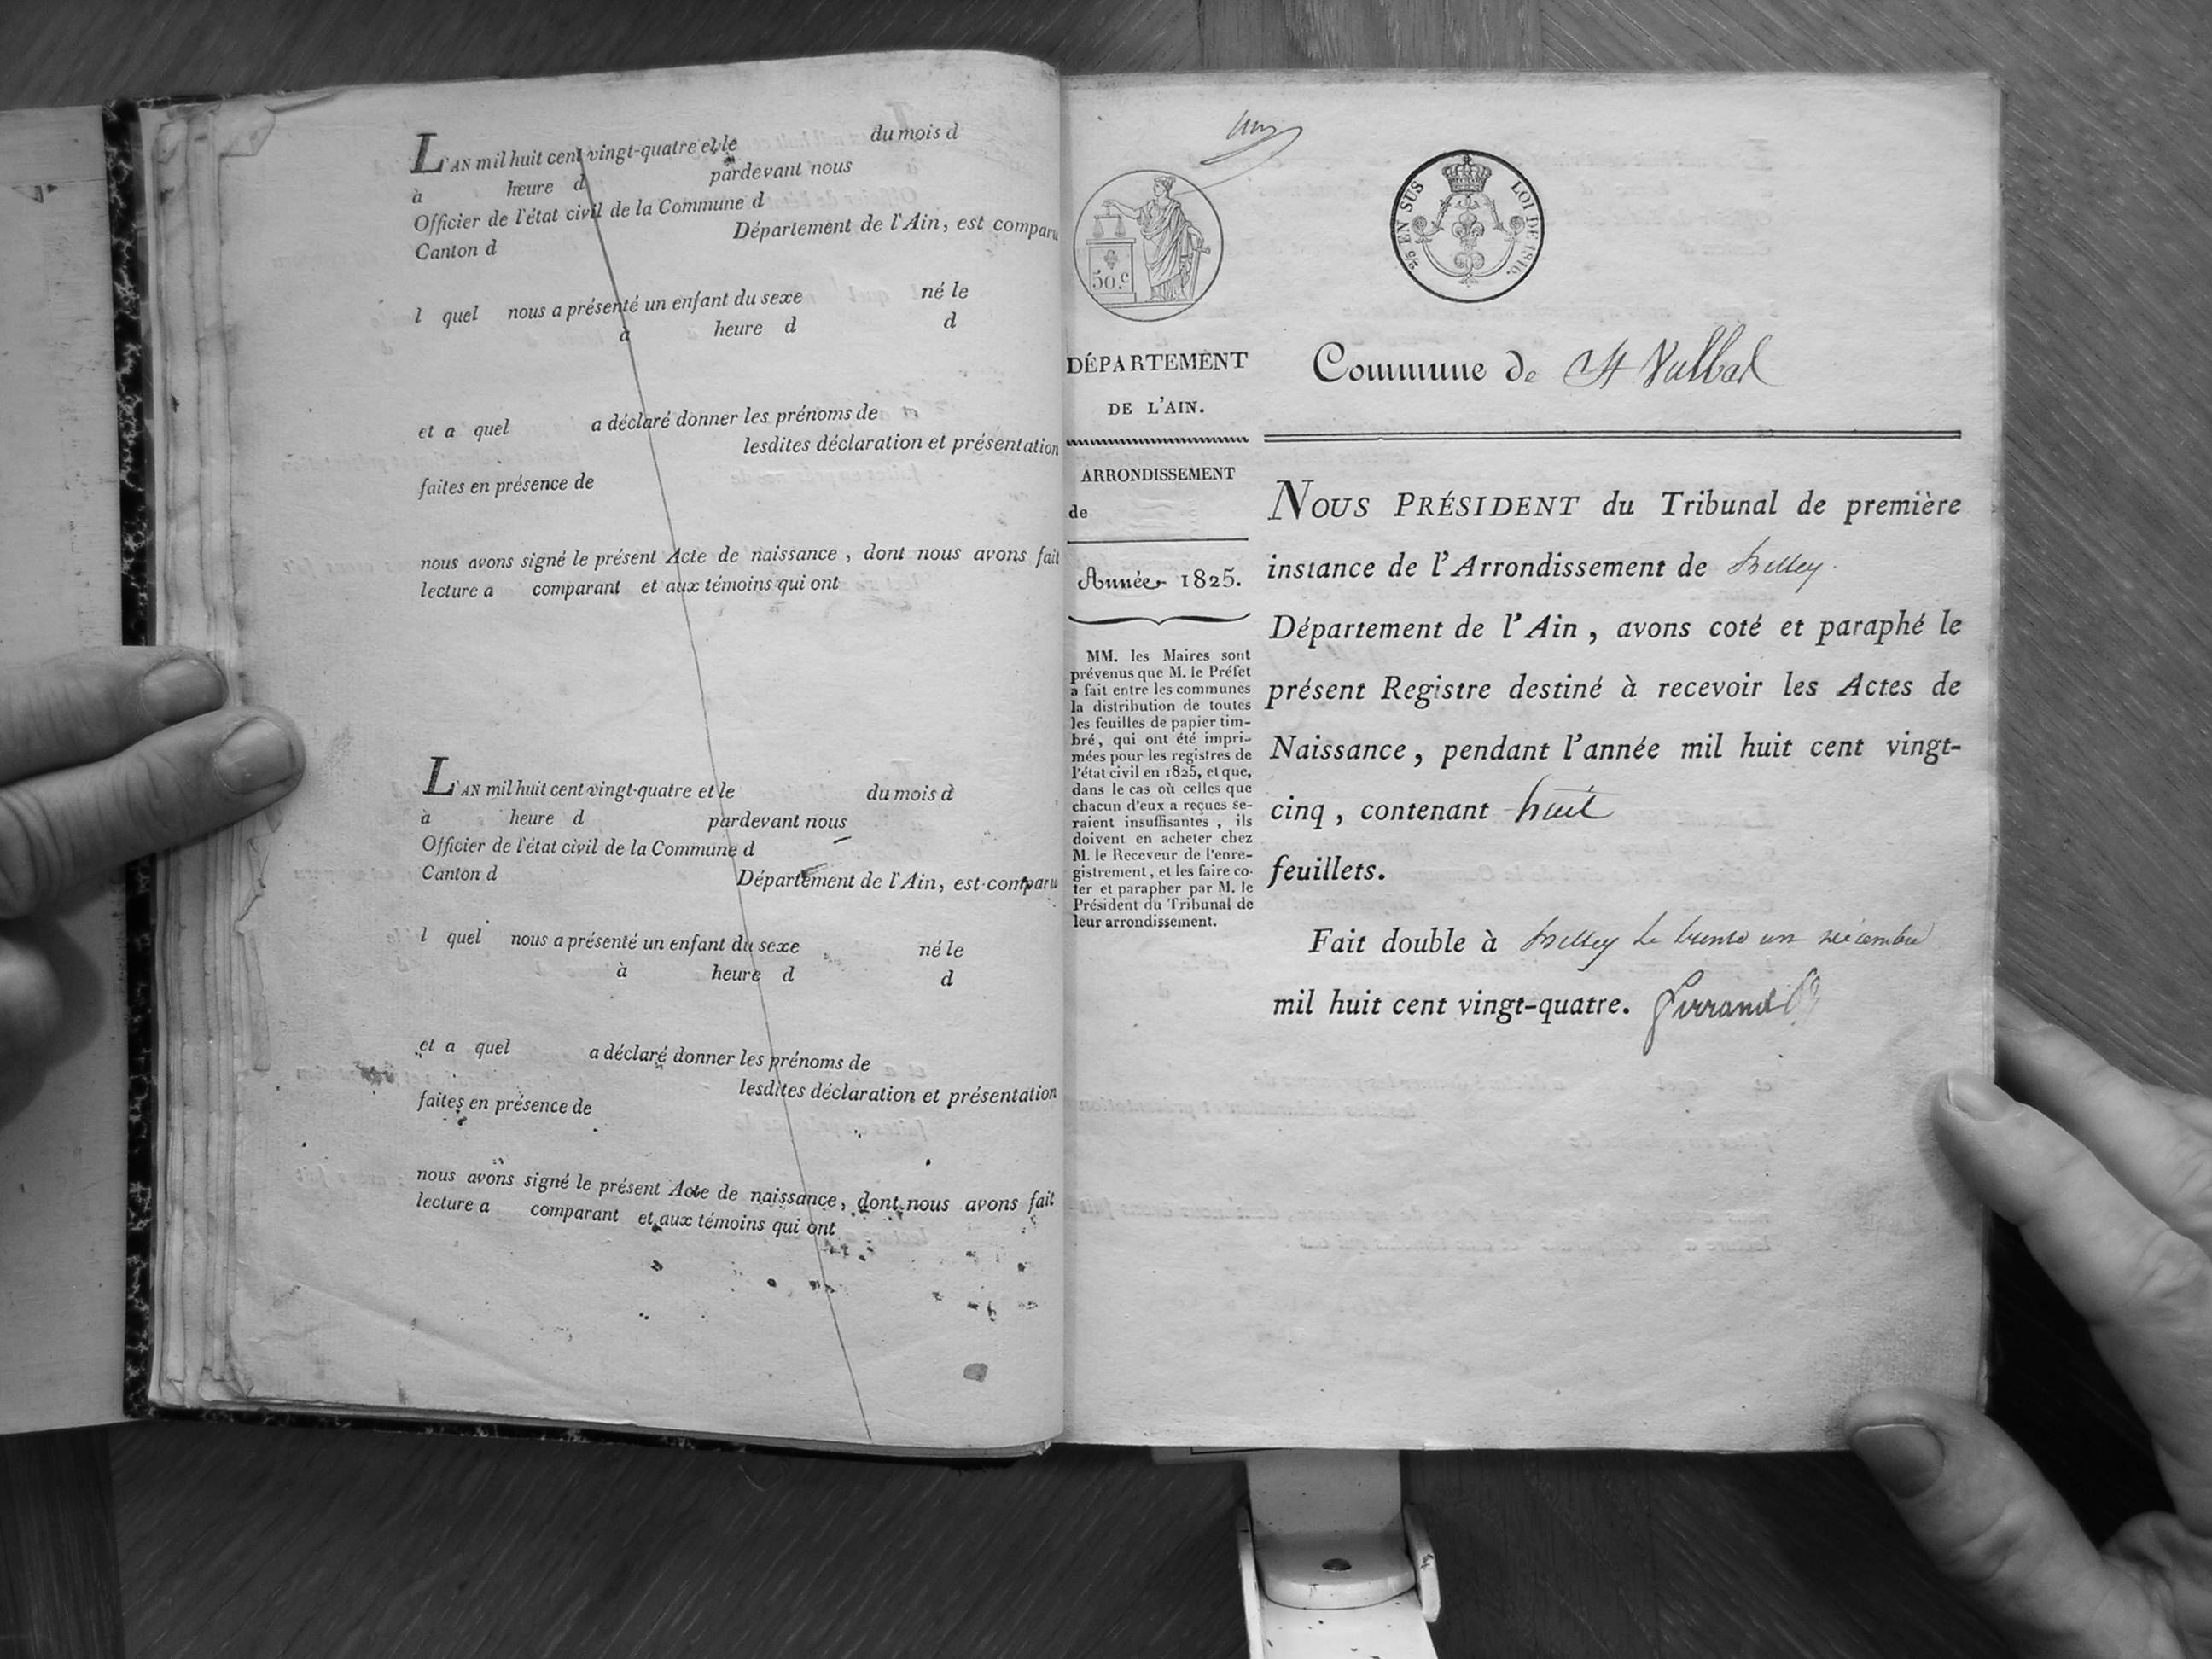 L'AN mil huit cent vingt-quatre et le du mois d
à heure d pardevant nous
Officier de l'état civil de la Commune d
Canton d Département de l'Ain, est comparu
l quel nous a présenté un enfant du sexe né le
à heure d d
et a quel a déclaré donner les prénoms de
lesdites déclaration et présentation
faites en présence de
nous avons signé le présent Acte de naissance, dont nous avons fait
lecture a comparant et aux témoins qui ont
L'AN mil huit cent vingt-quatre et le du mois d
à heure d pardevant nous
Officier de l'état civil de la Commune d
Canton d Département de l'Ain, est comparu
l quel nous a présenté un enfant du sexe né le
à heure d d
et a quel a déclaré donner les prénoms de
lesdites déclaration et présentation
faites en présence de
nous avons signé le présent Acte de naissance, dont nous avons fait
lecture a comparant et aux témoins qui ont
50.c
2/5 EN SUS LOI DE 1816.
DÉPARTEMENT
DE L'AIN.
ARRONDISSEMENT
de
Année 1825.
MM. les Maires sont
prévenus que M. le Préfet
a fait entre les communes
la distribution de toutes
les feuilles de papier tim-
bré, qui ont été impri-
mées pour les registres de
l'état civil en 1825, et que,
dans le cas où celles que
chacun d'eux a reçues se-
raient insuffisantes, ils
doivent en acheter chez
M. le Receveur de l'enre-
gistrement, et les faire co-
ter et parapher par M. le
Président du Tribunal de
leur arrondissement.
Commune de St Vulbas
NOUS PRÉSIDENT du Tribunal de première
instance de l'Arrondissement de Belley.
Département de l'Ain, avons coté et paraphé le
présent Registre destiné à recevoir les Actes de
Naissance, pendant l'année mil huit cent vingt-
cinq, contenant huit
feuillets.
Fait double à Belley le trente un décembre
mil huit cent vingt-quatre.